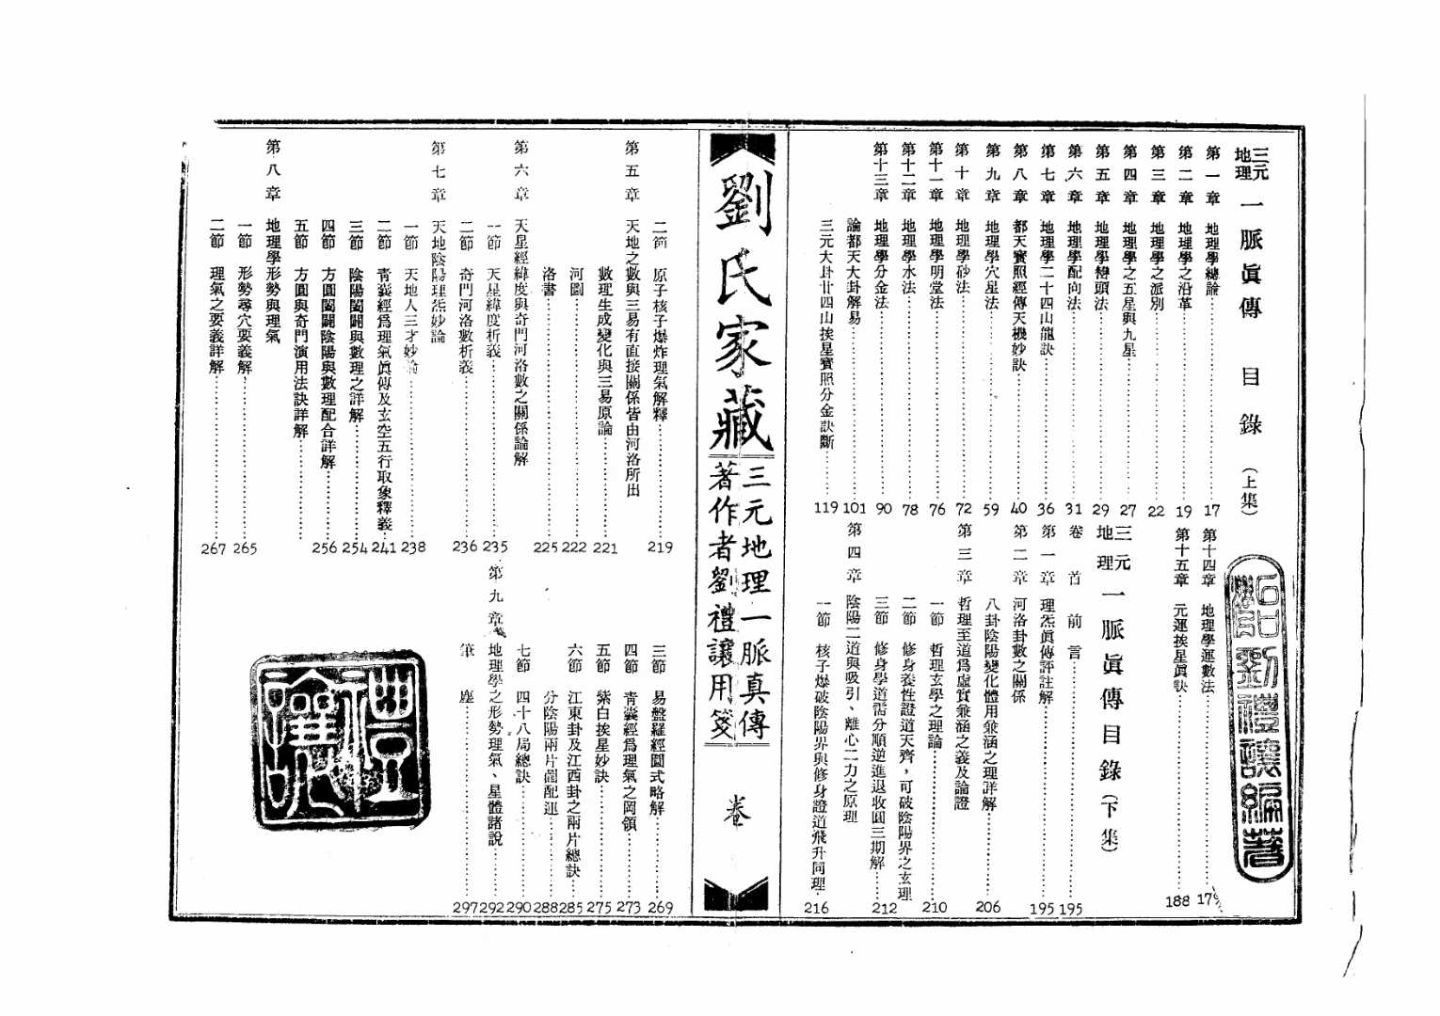 三元地理一脈眞傳 目錄（上集）
第一章 地理學總論 17
第二章 地理學之沿革 19
第三章 地理學之派別 22
第四章 地理學之五星與九星 27
第五章 地理學巒頭法 29
第六章 地理學配向法 31
第七章 地理學二十四山龍訣 36
第八章 都天寳照經傳天機妙訣 40
第九章 地理學穴星法 59
第十章 地理學砂法 72
第十一章 地理學明堂法 76
第十二章 地理學水法 78
第十三章 地理學分金法 90
論都天大卦解易 101
三元大卦廿四山挨星寳照分金訣斷 119
第十四章 地理學運數法 179
第十五章 元運挨星眞訣 188
三元地理一脈眞傳目錄（下集）
卷首 前言 195
第一章 理炁眞傳評註解 195
第二章 河洛卦數之關係
八卦陰陽變化體用兼涵之理詳解 206
第三章 哲理至道爲虛實兼涵之義及論證
一節 哲理玄學之理論 210
二節 修身養性證道天齊，可破陰陽界之玄理
三節 修身學道需分順逆進退收圓三期解 212
第四章 陰陽二道與吸引、離心二力之原理
一節 核子爆破陰陽界與修身證道飛升同理 216
劉氏家藏
三元地理一脈真傳
著作者劉禮讓用箋
卷
二節 原子核子爆炸理氣解釋 219
第五章 天地之數與三易有直接關係皆由河洛所出
數理生成變化與三易原論 221
河圖 222
洛書 225
第六章 天星經緯度與奇門河洛數之關係論解
一節 天星緯度析義 235
二節 奇門河洛數析義 236
第七章 天地陰陽理炁妙論
一節 天地人三才妙論 238
二節 青囊經爲理氣眞傳及玄空五行取象釋義 241
三節 陰陽闔闢與數理之詳解 254
四節 方圓闔闢陰陽與數理配合詳解 256
五節 方圓與奇門演用法訣詳解
第八章 地理學形勢與理氣
一節 形勢尋穴要義解 265
二節 理氣之要義詳解 267
三節 易盤羅經圖式略解 269
四節 青囊經爲理氣之罔領 273
五節 紫白挨星妙訣 275
六節 江東卦及江西卦之兩片總訣 285
分陰陽兩片龍配運 288
七節 四十八局總訣 290
第九章 地理學之形勢理氣、星體諸說 292
筆塵 297